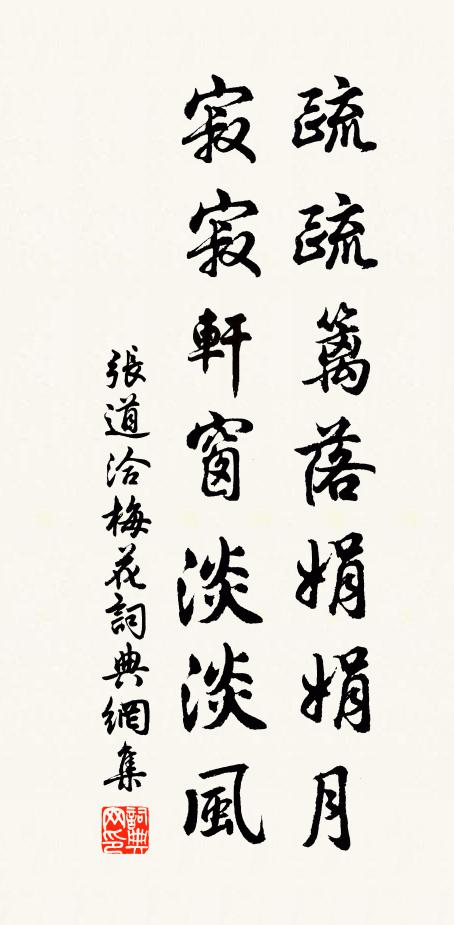 疏疏籬落娟娟月
寂寂軒窗淡淡風
張道洽梅花詞典網集
詞典网印